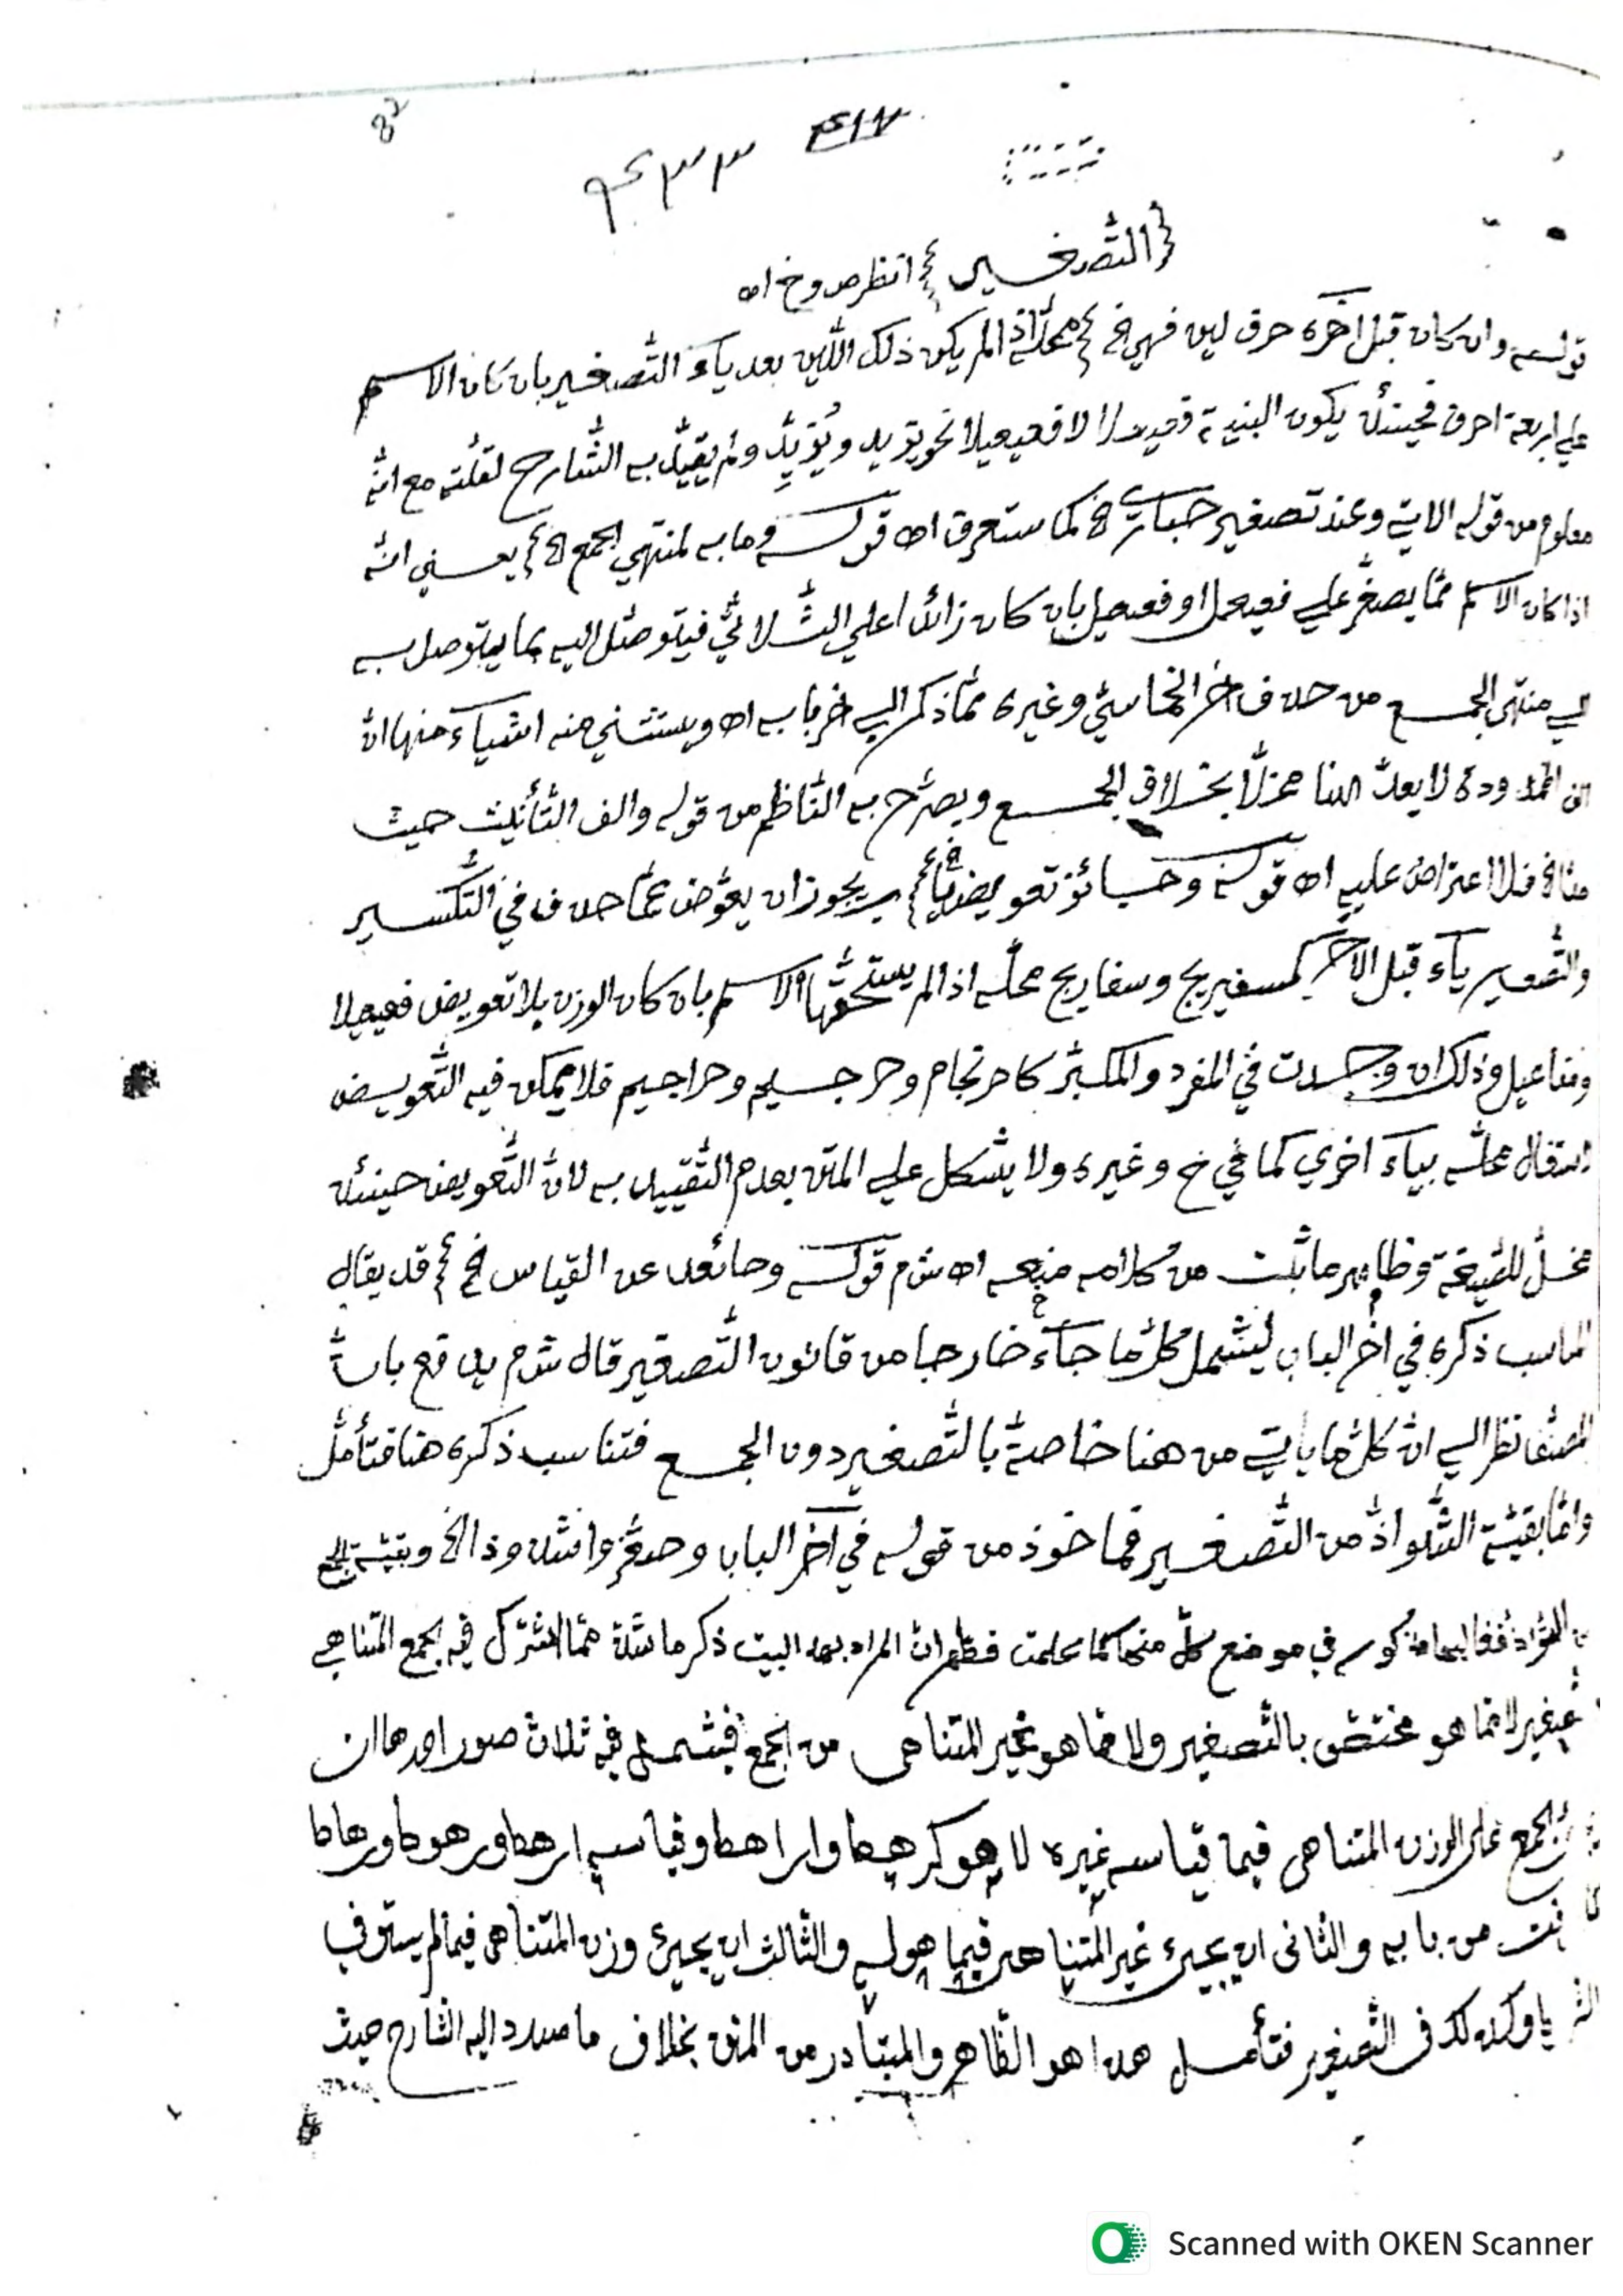 82
٤٣٣ ٤١٧
﴿التّصغير﴾ انظر ص وخ اه
قوله وان كان قبل اخره حرف لين فهي الخ محلّه اذا لم يكن ذلك اللّين بعد ياء التّصغير بان كان الاسم
علي اربعة احرف فحينئذ يكون البنية فعيعلا لا فعيعيلا نحو يزيد ويُزَيِّد ولم يقيّد به الشّارح لقلّته مع انّه
معلوم من قوله الاتي وعند تصغير حباري الخ كما ستعرف اه قوله وما به لمنتهي الجمع الخ يعني انّه
اذا كان الاسم ممّا يصغّر علي فعيعل او فعيعيل بان كان زائدا علي الثّلاثيّ فيتوصّل اليه بما يتوصل به
الي منتهي الجمع من حذف اخر الخماسيّ وغيره ممّا ذكر الي اخر بابه اه ويستثني منه اشياء منها انّ
الف الممدودة لا يعدّ هنا مخلّا بخلاف الجمع ويصرّح به النّاظم من قوله والف التّأنيث حيث
مدّا الخ فلا اعتراض عليه اه قوله وجائز تعويض يا الخ يجوز ان يعوّض عمّا حذف في التّكسير
والتّصغير ياء قبل الآخر كسفيريج وسفاريج محلّه اذا لم يستحقّها الاسم بان كان الوزن بلا تعويض فعيعيلا
ومفاعيل وذلك ان وجدت في المفرد والمكبّر كاحرنجام وحرجيم وحراجيم فلا يمكن فيه التّعويض
اشتغال محلّه بياء اخري كما في خ وغيره ولا يشكل علي المتن بعدم التّقييد به لانّ التّعويض حينئذ
مخلّ للصّيغة وظاهر ما بثّت من كلامه منعه اه ش م قوله وحائد عن القياس الخ قد يقال
المناسب ذكره في اخر الباب ليشمل كلّ ما جاء خارجا من قانون التّصغير قال ش م يدفع بانّ
المصنّف نظر الي انّ كلّ ما ياتي من هنا خاصّة بالتّصغير دون الجمع فتناسب ذكره هنا فتأمّل
وامّا بقيّة الشّواذّ من التّصغير فمأخوذ من قوله في آخر الباب وصغّروا شذوذا الخ وبقيّة الجمع
من الشّواذّ مذكور في موضع كلّ منها كما علمت فظهر انّ المراد بهذا البيت ذكر ما شذّ ممّا اشترك فيه الجمع المتناهي
والتّصغير لا ما هو مختصّ بالتّصغير ولا ما هو بغير المتناهي من الجمع فيشمل فيه ثلاث صور احدها ان
الجمع على الوزن المتناهي فيما قياسه غيره لا هو كرهط واراهط وقياسه ارهط ورهوط ورهاط
من بابه والثاني ان يجيء غير المتناهي فيما هو له والثالث ان يجيئ وزن المتناهي فيما لم يستوف
وكذلك في التّصغير فتأمل هذا هو الظّاهر والمتبادر من المتن بخلاف ما صدد اليه الشّارح حيث
Scanned with OKEN Scanner